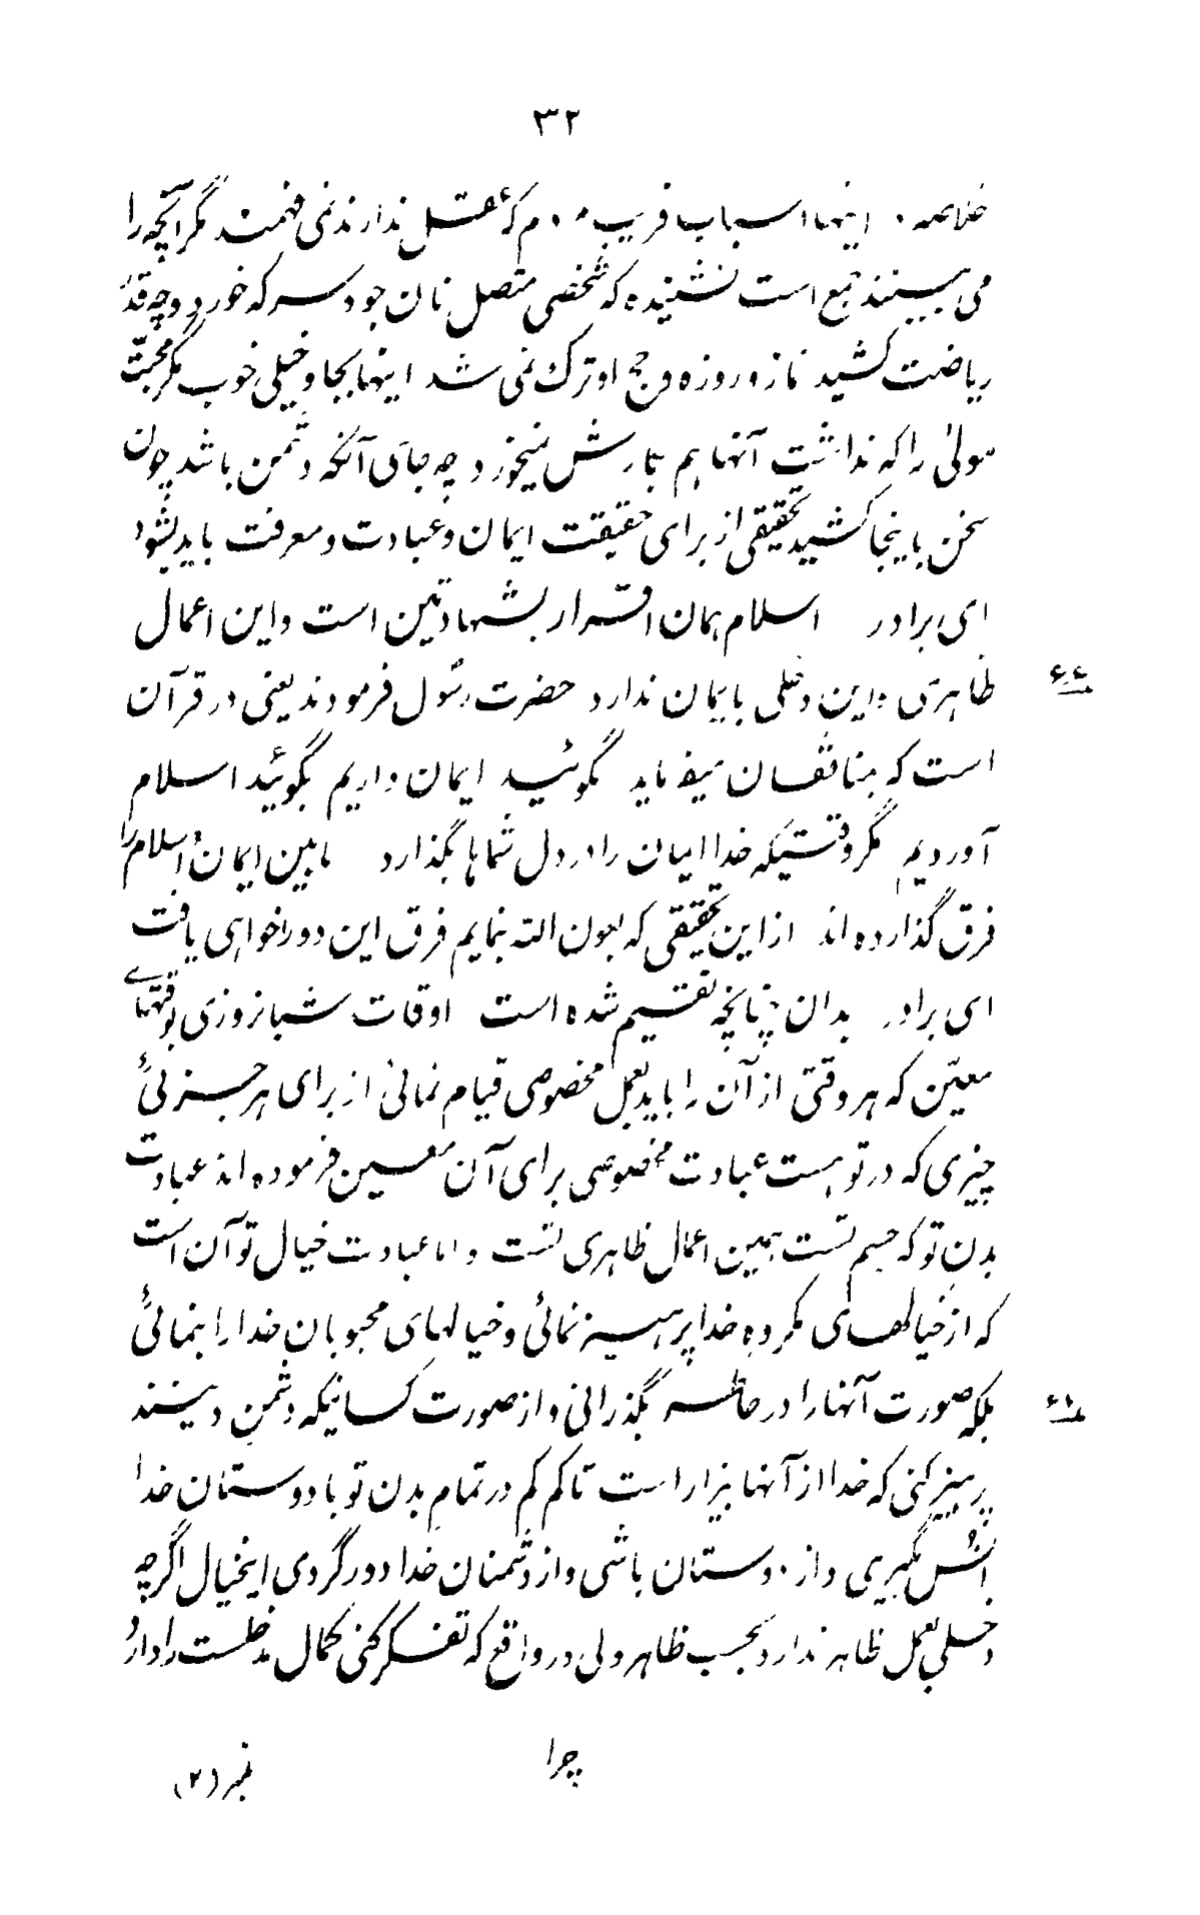 ۳۲
خلاصه اینها اسباب فریب مردم که عقل ندارند نمی فهمند مگر آنچه را
می بینند جمع است نشنیده که شخصی متصل نان جو و سرکه خورد و چه قدر
ریاضت کشید نماز و روزه و حج او ترک نمی شد اینها بجا و خیلی خوب مگر محبّت
مولیٰ را که نداشت آنها هم بکارش نمیخورد چه جای آنکه دشمن باشد چون
سخن باینجا کشید تحقیقی از برای حقیقت ایمان و عبادت و معرفت باید بشود
ای برادر اسلام همان اقرار بشهادتین است و این اعمال
ظاهری و این دخلی بایمان ندارد حضرت رسول فرمودند یعنی در قرآن
است که بمنافقان میفرماید نگوئید ایمان داریم بگوئید اسلام
آوردیم مگر وقتیکه خدا ایمان را در دل شماها بگذارد مابین ایمان و اسلام را
فرق گذارده اند از این تحقیقی که بعون الله بنمایم فرق این دو را خواهی یافت
ای برادر بدان چنانچه تقسیم شده است اوقات شبانروزی بوقتهای
معیّن که هر وقتی از آن را باید بعمل مخصوصی قیام نمائی از برای هر جزئی
چیزی که در تو هست عبادت مخصوصی برای آن معین فرموده اند عبادت
بدن تو که جسم تست همین اعمال ظاهری تست و اما عبادت خیال تو آن است
که از خیالهای مکروه خدا پرهیز نمائی و خیالهای محبوبان خدا را بنمائی
بلکه صورت آنها را در خاطر بگذرانی و از صورت کسانیکه دشمن دینند
پرهیز کنی که خدا از آنها بیزار است تا کم کم در تمام بدن تو با دوستان خدا
انس بگیری و از دوستان باشی و از دشمنان خدا دور گردی اینخیال اگرچه
دخلی بعمل ظاهر ندارد بحسب ظاهر ولی در واقع که تفکر کنی کمال مدخلیت را دارد
چرا
نمبر (۲)